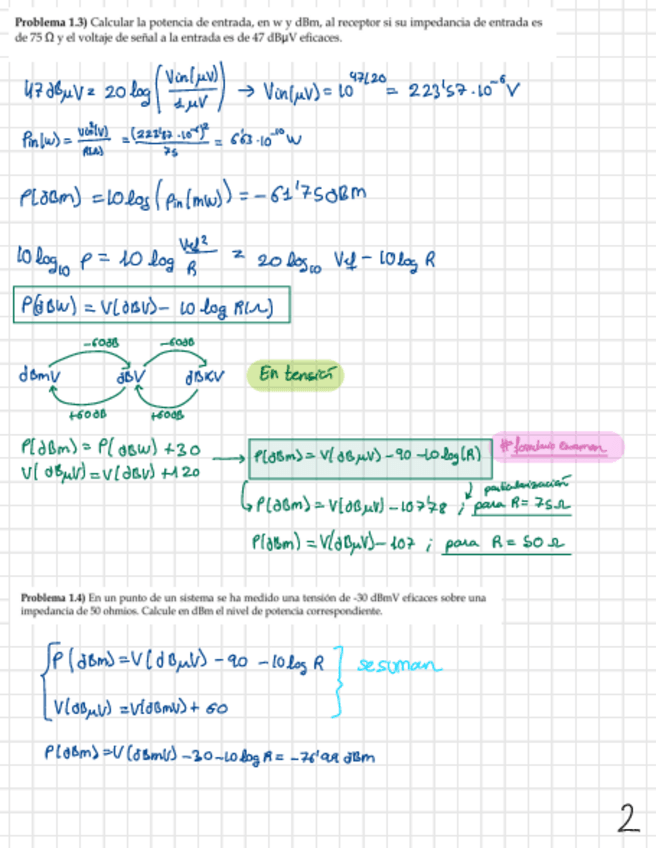 Problema 1.3) Calcular la potencia de entrada, en w y dBm, al receptor si su impedancia de entrada es
de 75 Ω y el voltaje de señal a la entrada es de 47 dBμV eficaces.
47 dBμV = 20 log (Vin(μV) / 1 μV) → Vin(μV) = 10^47/20 = 223'57·10^-6 V
Pin(w) = Vin²(V) / R(Ω) = (223'87·10^-6)² / 75 = 6'63·10^-10 W
P(dBm) = 10 log (Pin(mW)) = -61'75 dBm
10 log10 P = 10 log Vef² / R = 20 log10 Vef - 10 log R
P(dBW) = V(dBV) - 10 log R(Ω)
-60dB -60dB
dBmV dBV dBKV En tensión
+60dB +60dB
P(dBm) = P(dBW) + 30
V(dBμV) = V(dBV) + 120
→ P(dBm) = V(dBμV) - 90 - 10 log(R) # formulas examen
particularización
P(dBm) = V(dBμV) - 107'78 ; para R = 75 Ω
P(dBm) = V(dBμV) - 107 ; para R = 50 Ω
Problema 1.4) En un punto de un sistema se ha medido una tensión de -30 dBmV eficaces sobre una
impedancia de 50 ohmios. Calcule en dBm el nivel de potencia correspondiente.
P(dBm) = V(dBμV) - 90 - 10 log R
se suman
V(dBμV) = V(dBmV) + 60
P(dBm) = V(dBmV) - 30 - 10 log R = -76'99 dBm
2